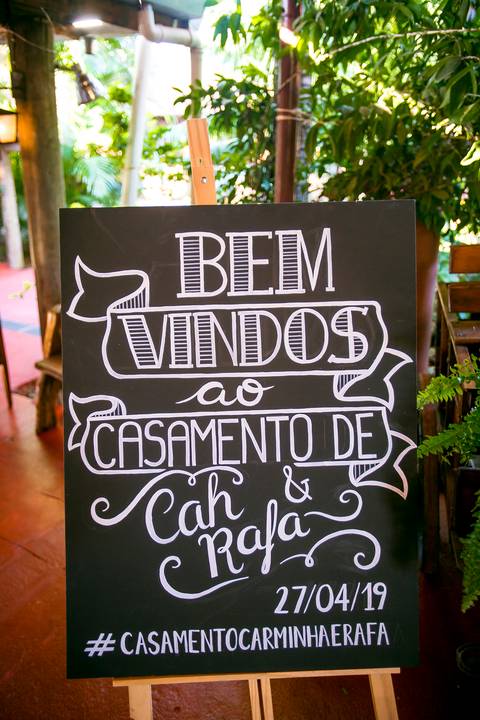 BEM
VINDOS
ao
CASAMENTO DE
Cah &
Rafa
27/04/19
#CASAMENTOCARMINHAERAFA